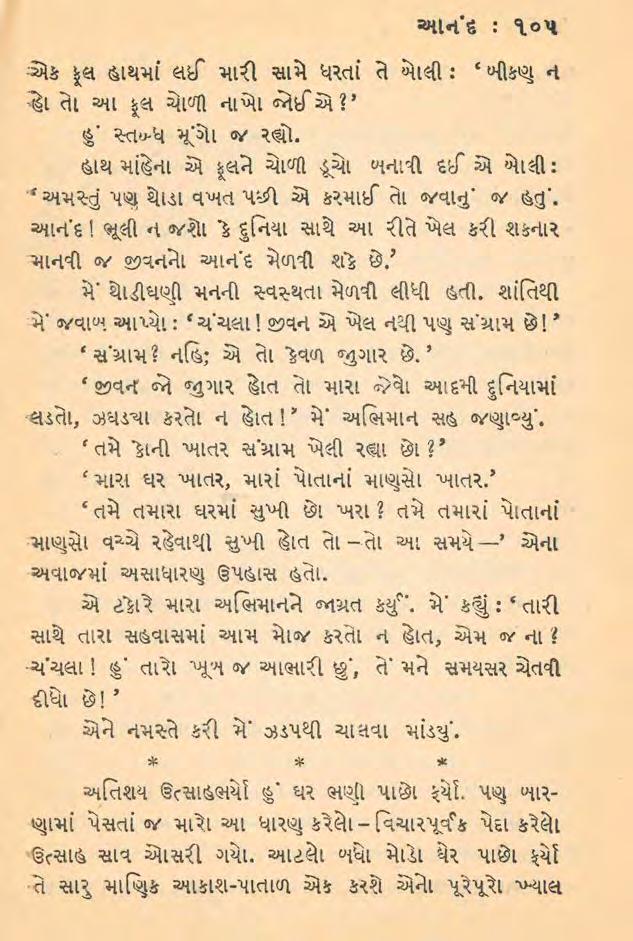 આનંદ : ૧૦૫
એક ફૂલ હાથમાં લઈ મારી સામે ધરતાં તે બોલી : ‘ બીકણ ન
હો તો આ ફૂલ ચોળી નાખો જોઈ એ ?’
હું સ્તબ્ધ મૂંગો જ રહ્યો.
હાથ માંહેના એ ફૂલને ચોળી ડૂચો બનાવી દઈ એ બોલી :
‘ અમસ્તું પણ થોડા વખત પછી એ કરમાઈ તો જવાનું જ હતું.
આનંદ ! ભૂલી ન જશો કે દુનિયા સાથે આ રીતે ખેલ કરી શકનાર
માનવી જ જીવનનો આનંદ મેળવી શકે છે.’
મેં થોડીઘણી મનની સ્વસ્થતા મેળવી લીધી હતી. શાંતિથી
મેં જવાબ આપ્યો : ‘ ચંચલા ! જીવન એ ખેલ નથી પણ સંગ્રામ છે ! ’
‘ સંગ્રામ ? નહિ; એ તો કેવળ જુગાર છે. ’
‘ જીવન જો જુગાર હોત તો મારા જેવો આદમી દુનિયામાં
લડતો, ઝઘડચા કરતો ન હોત ! ’ મેં અભિમાન સહ જણાવ્યું.
‘ તમે કોની ખાતર સંગ્રામ ખેલી રહ્યા છો ?’
‘ મારા ઘર ખાતર, મારાં પોતાનાં માણસો ખાતર.’
‘ તમે તમારા ઘરમાં સુખી છો ખરા ? તમે તમારાં પોતાનાં
માણસો વચ્ચે રહેવાથી સુખી હોત તો – તો આ સમયે —’ એના
અવાજમાં અસાધારણ ઉપહાસ હતો.
એ ટકોરે મારા અભિમાનને જાગ્રત કર્યું. મેં કહ્યું : ‘ તારી
સાથે તારા સહવાસમાં આમ મોજ કરતો ન હોત, એમ જ ના ?
ચંચલા ! હું તારો ખૂબ જ આભારી છું, તેં મને સમયસર ચેતવી
દીધો છે ! ’
એને નમસ્તે કરી મેં ઝડપથી ચાલવા માંડયું.
* * *
અતિશય ઉત્સાહભર્યો હું ઘર ભણી પાછો ફર્યો. પણ બાર-
ણામાં પેસતાં જ મારો આ ધારણ કરેલો – વિચારપૂર્વક પેદા કરેલો
ઉત્સાહ સાવ ઓસરી ગયો. આટલો બધો મોડો ઘેર પાછો ફર્યો
તે સારુ માણિક આકાશ-પાતાળ એક કરશે એનો પૂરેપૂરો ખ્યાલ